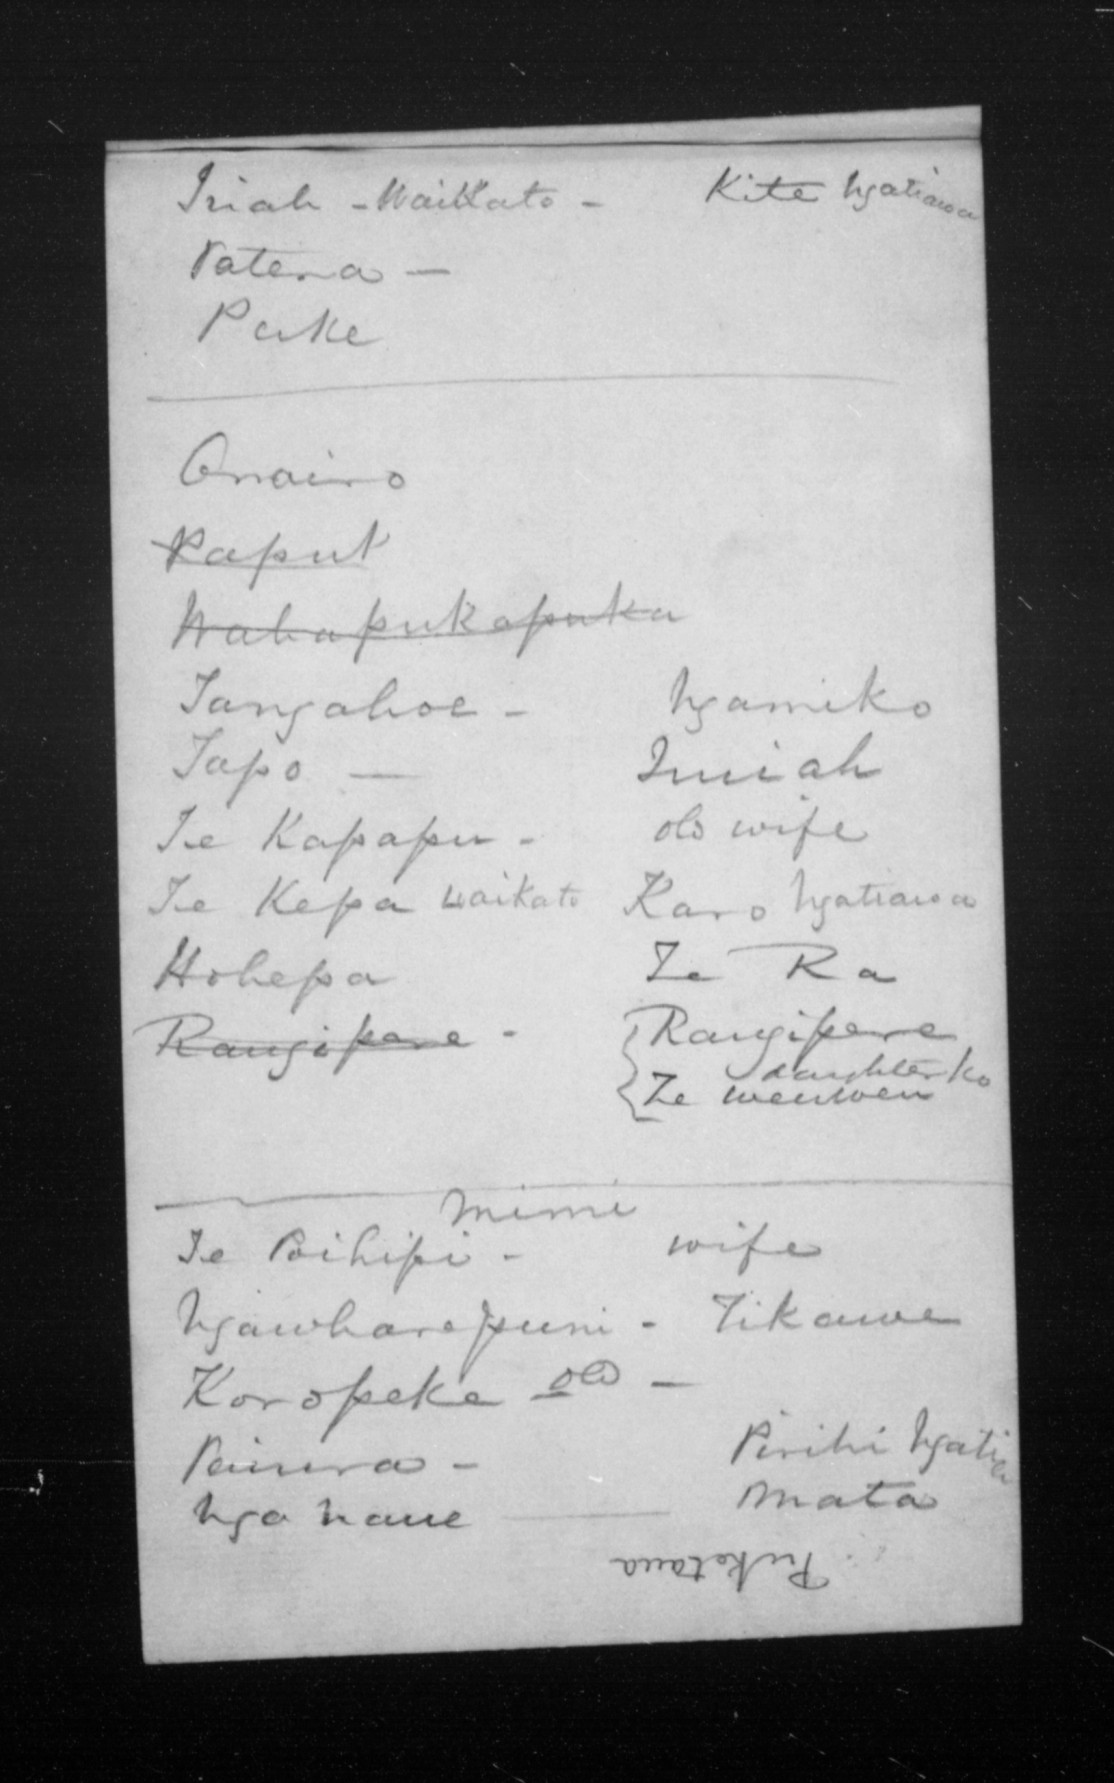 Iriah - Waikato - Kite Ngatiawa
Patena -
Puke
Onairo
Paput
Wahapukapuka
Tangahoe - Ngamiko
Tapo — Imiah
Te Kapapu - old wife
Te Kepa Waikato Karo Ngatiawa
Hohepa Te Ra
Rangipere - Rangipere
daughter ko
Te
Mimi
Te Poihipi - wife
Ngawharepuni - Tikawe
Koropeke old -
- Pirihi Ngati
Nga Naue — Mata
Puketaua